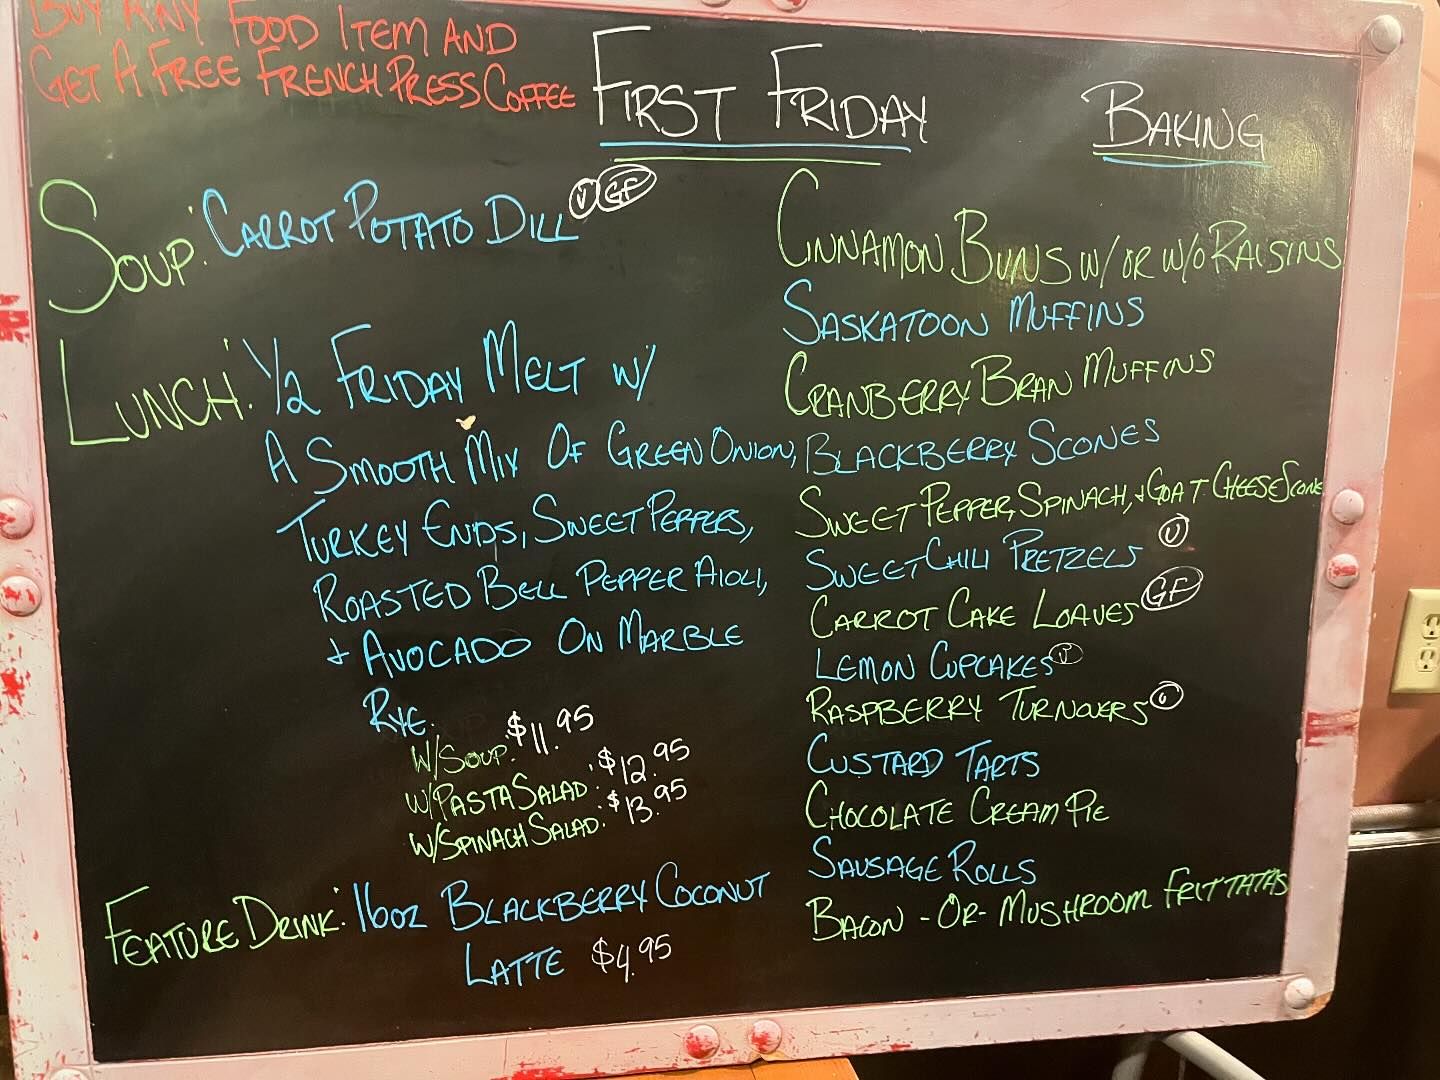 BUY ANY FOOD ITEM AND
GET A FREE FRENCH PRESS COFFEE
FIRST FRIDAY
SOUP: CARROT POTATO DILL V GF
LUNCH: 1/2 FRIDAY MELT W/
A SMOOTH MIX OF GREEN ONION,
TURKEY ENDS, SWEET PEPPERS,
ROASTED BELL PEPPER AIOLI,
+ AVOCADO ON MARBLE
RYE.
W/SOUP: $11.95
W/PASTA SALAD: $12.95
W/SPINACH SALAD: $13.95
FEATURE DRINK: 16OZ BLACKBERRY COCONUT
LATTE $4.95
BAKING
CINNAMON BUNS W/ OR W/O RAISINS
SASKATOON MUFFINS
CRANBERRY BRAN MUFFINS
BLACKBERRY SCONES
SWEET PEPPER, SPINACH, + GOAT CHEESE SCONE
SWEET CHILI PRETZELS V
CARROT CAKE LOAVES GF
LEMON CUPCAKES V
RASPBERRY TURNOVERS V
CUSTARD TARTS
CHOCOLATE CREAM PIE
SAUSAGE ROLLS
BACON - OR - MUSHROOM FRITTATAS